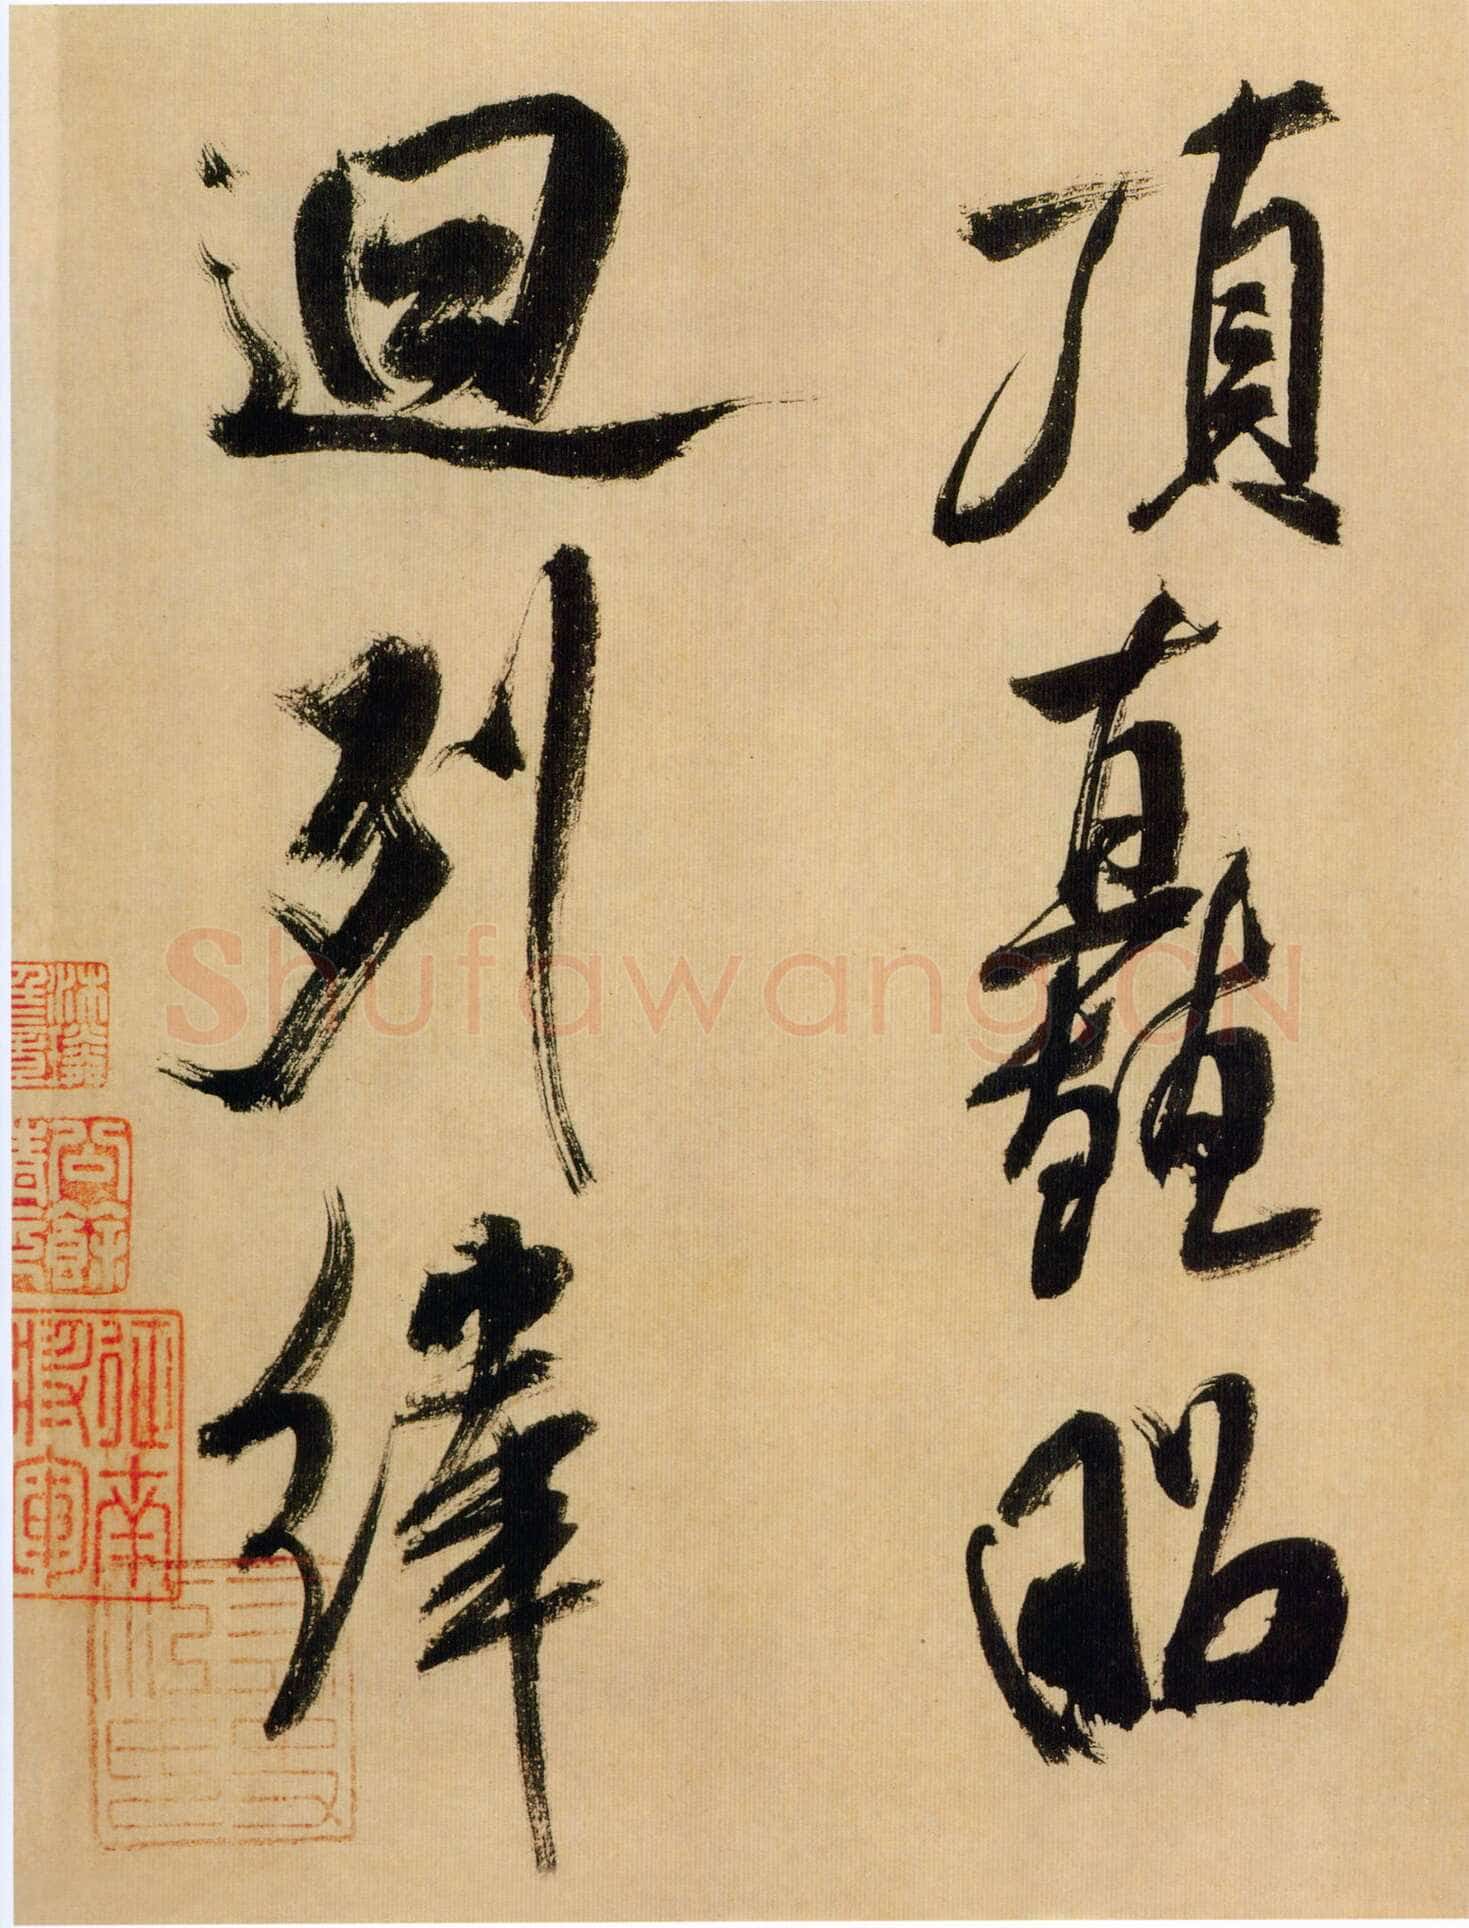 頂矗昭
迴列緯
Shufawang.CN